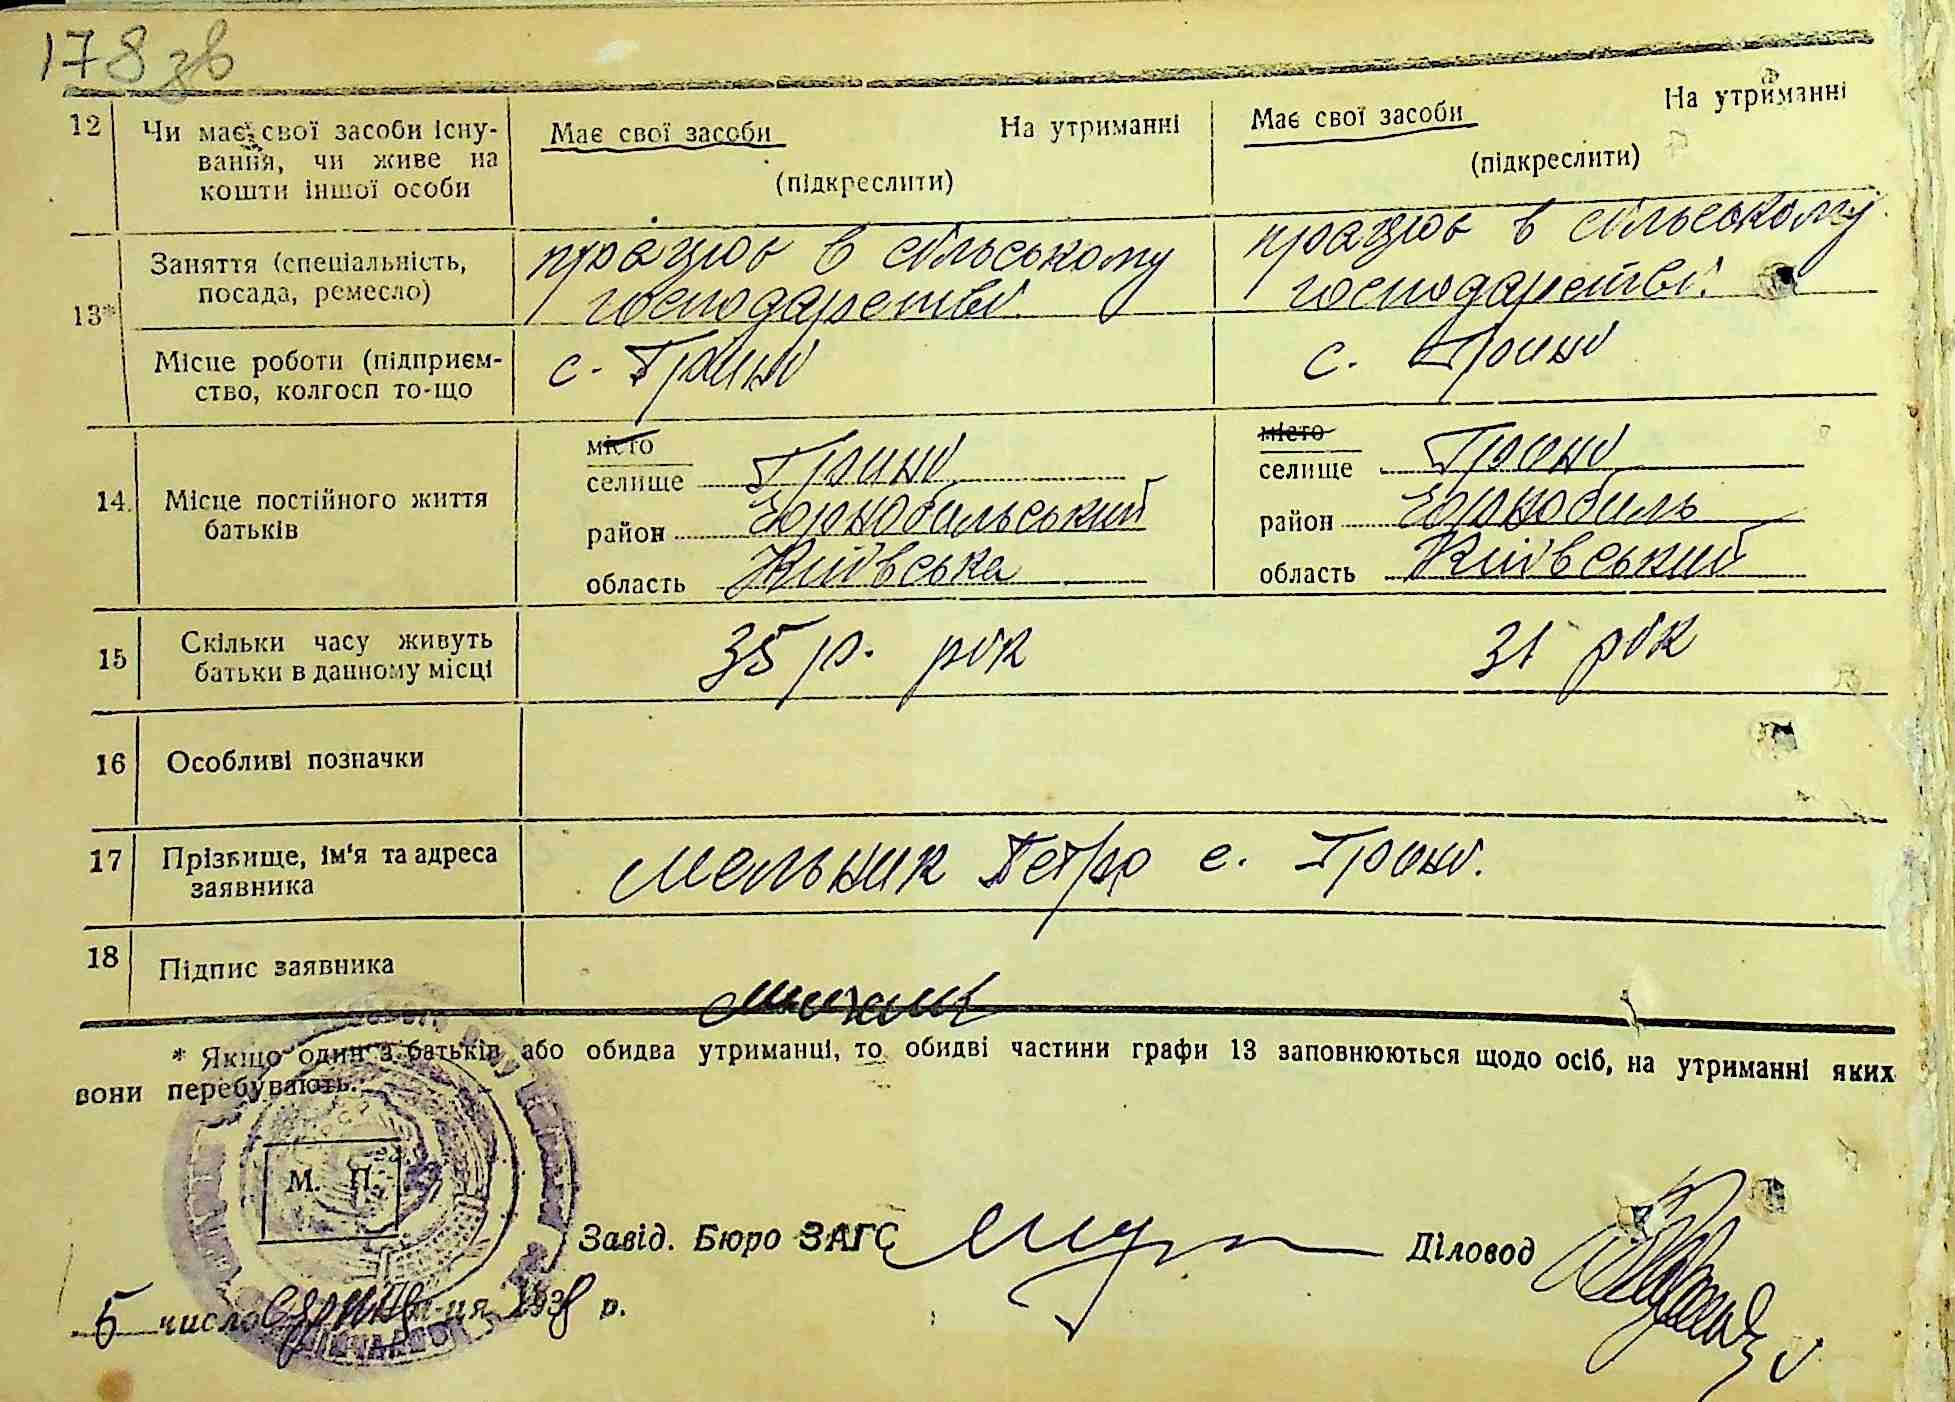 178 зв
12 Чи має свої засоби існу- Має свої засоби На утриманні Має свої засоби На утриманні
вання, чи живе на (підкреслити) (підкреслити)
кошти іншої особи
13* Заняття (спеціальність, працює в сільському працює в сільському
посада, ремесло) господарстві господарстві.
Місце роботи (підприєм- с. Грині с. Грині
ство, колгосп то-що
14. Місце постійного життя місто місто
батьків селище Грині селище Грині
район Чорнобильський район Чорнобиль
область Київська область Київський
15 Скільки часу живуть 35 р. рік 31 рік
батьки в данному місці
16 Особливі позначки
17 Прізвище, ім'я та адреса Мельник Петро с. Грині.
заявника
18 Підпис заявника
* Якщо один з батьків або обидва утриманці, то обидві частини графи 13 заповнюються щодо осіб, на утриманні яких
вони перебувають.
М. П.
Завід. Бюро ЗАГС Діловод
5 число серпня м-ця 1938 р.